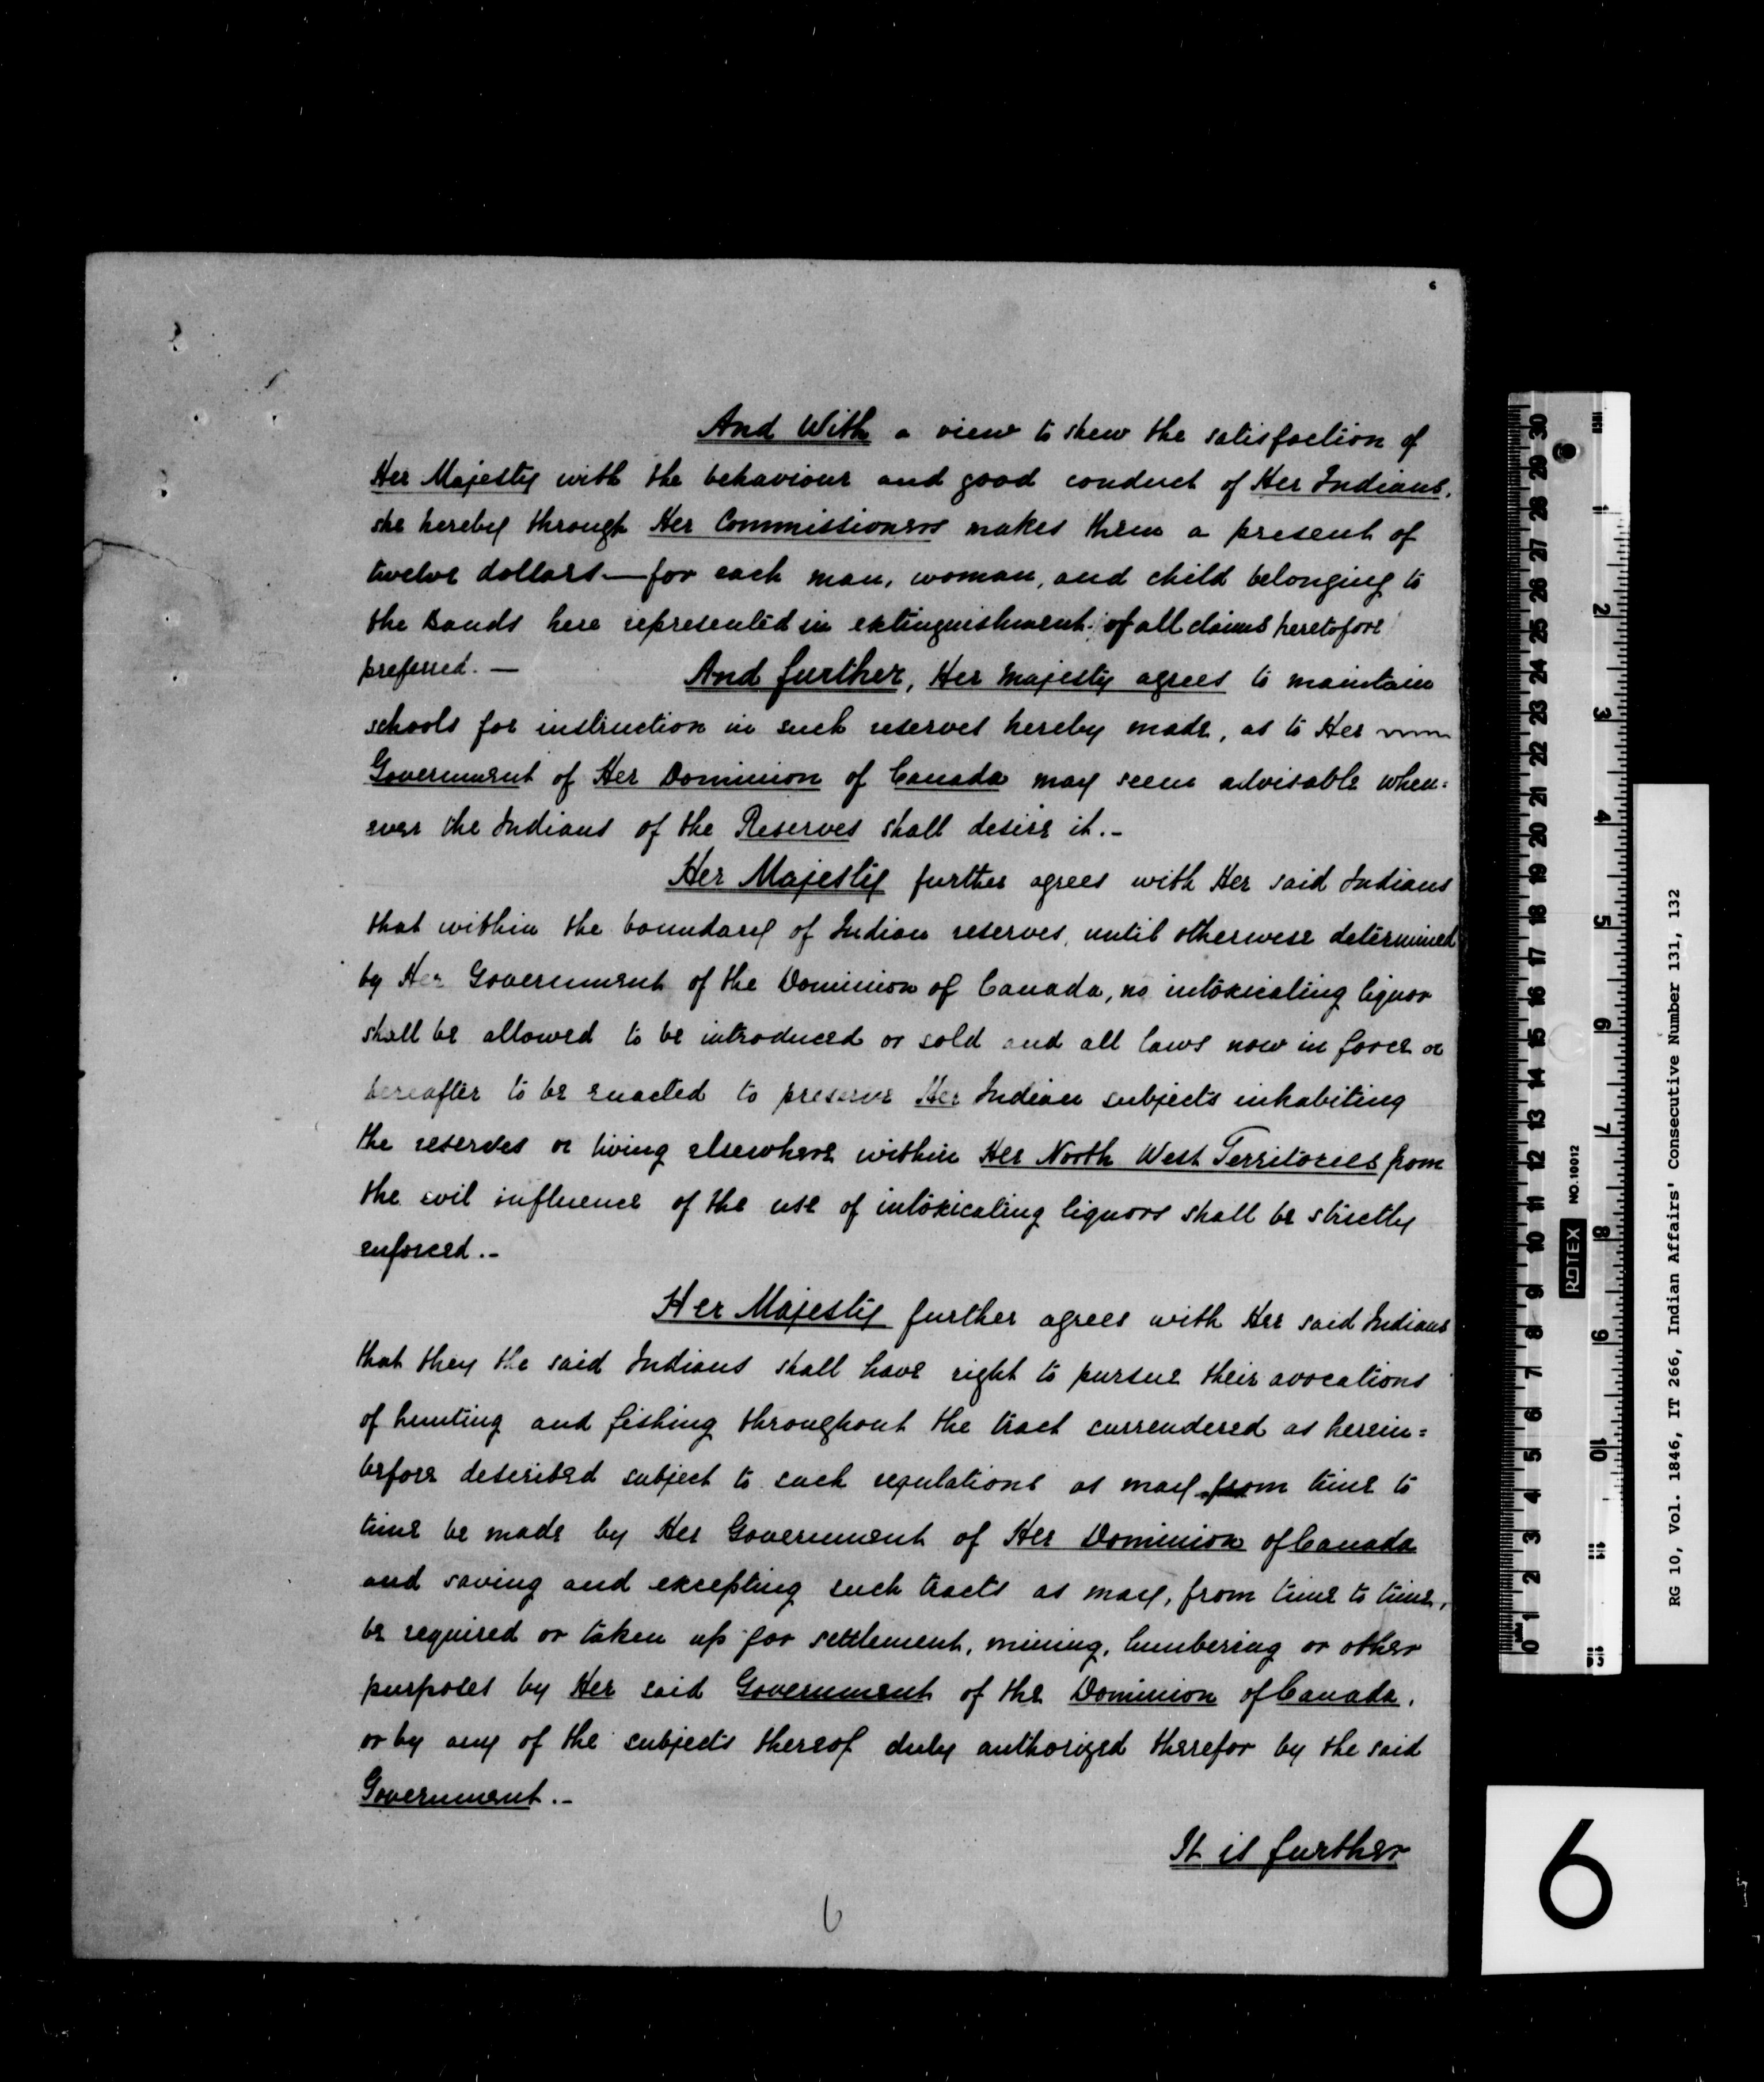 6
And With a view to shew the satisfaction of
Her Majesty with the behaviour and good conduct of Her Indians,
she hereby through Her Commissioners makes them a present of
twelve dollars — for each man, woman, and child belonging to
the Bands here represented in extinguishment of all claims heretofore
preferred. —
And further, Her Majesty agrees to maintain
schools for instruction in such reserves hereby made, as to Her
Government of Her Dominion of Canada may seem advisable when=
ever the Indians of the Reserves shall desire it.-
Her Majesty further agrees with Her said Indians
that within the boundary of Indian reserves, until otherwise determined
by Her Government of the Dominion of Canada, no intoxicating liquor
shall be allowed to be introduced or sold and all laws now in force or
hereafter to be enacted to preserve Her Indian subjects inhabiting
the reserves or living elsewhere within Her North West Territories from
the evil influence of the use of intoxicating liquors shall be strictly
enforced.-
Her Majesty further agrees with Her said Indians
that they the said Indians shall have right to pursue their avocations
of hunting and fishing throughout the tract surrendered as herein=
before described subject to such regulations as may from time to
time be made by Her Government of Her Dominion of Canada
and saving and excepting such tracts as may, from time to time,
be required or taken up for settlement, mining, lumbering or other
purposes by Her said Government of the Dominion of Canada,
or by any of the subjects thereof duly authorized therefor by the said
Government.-
It is further
6
30 29 28 27 26 25 24 23 22 21 20 19 18 17 16 15 14 13 12 11 10 9 8 7 6 5 4 3 2 1 0
1 2 3 4 5 6 7 8 9 10 11
ROTEX NO.10012
RG 10, Vol. 1846, IT 266, Indian Affairs' Consecutive Number 131, 132
6